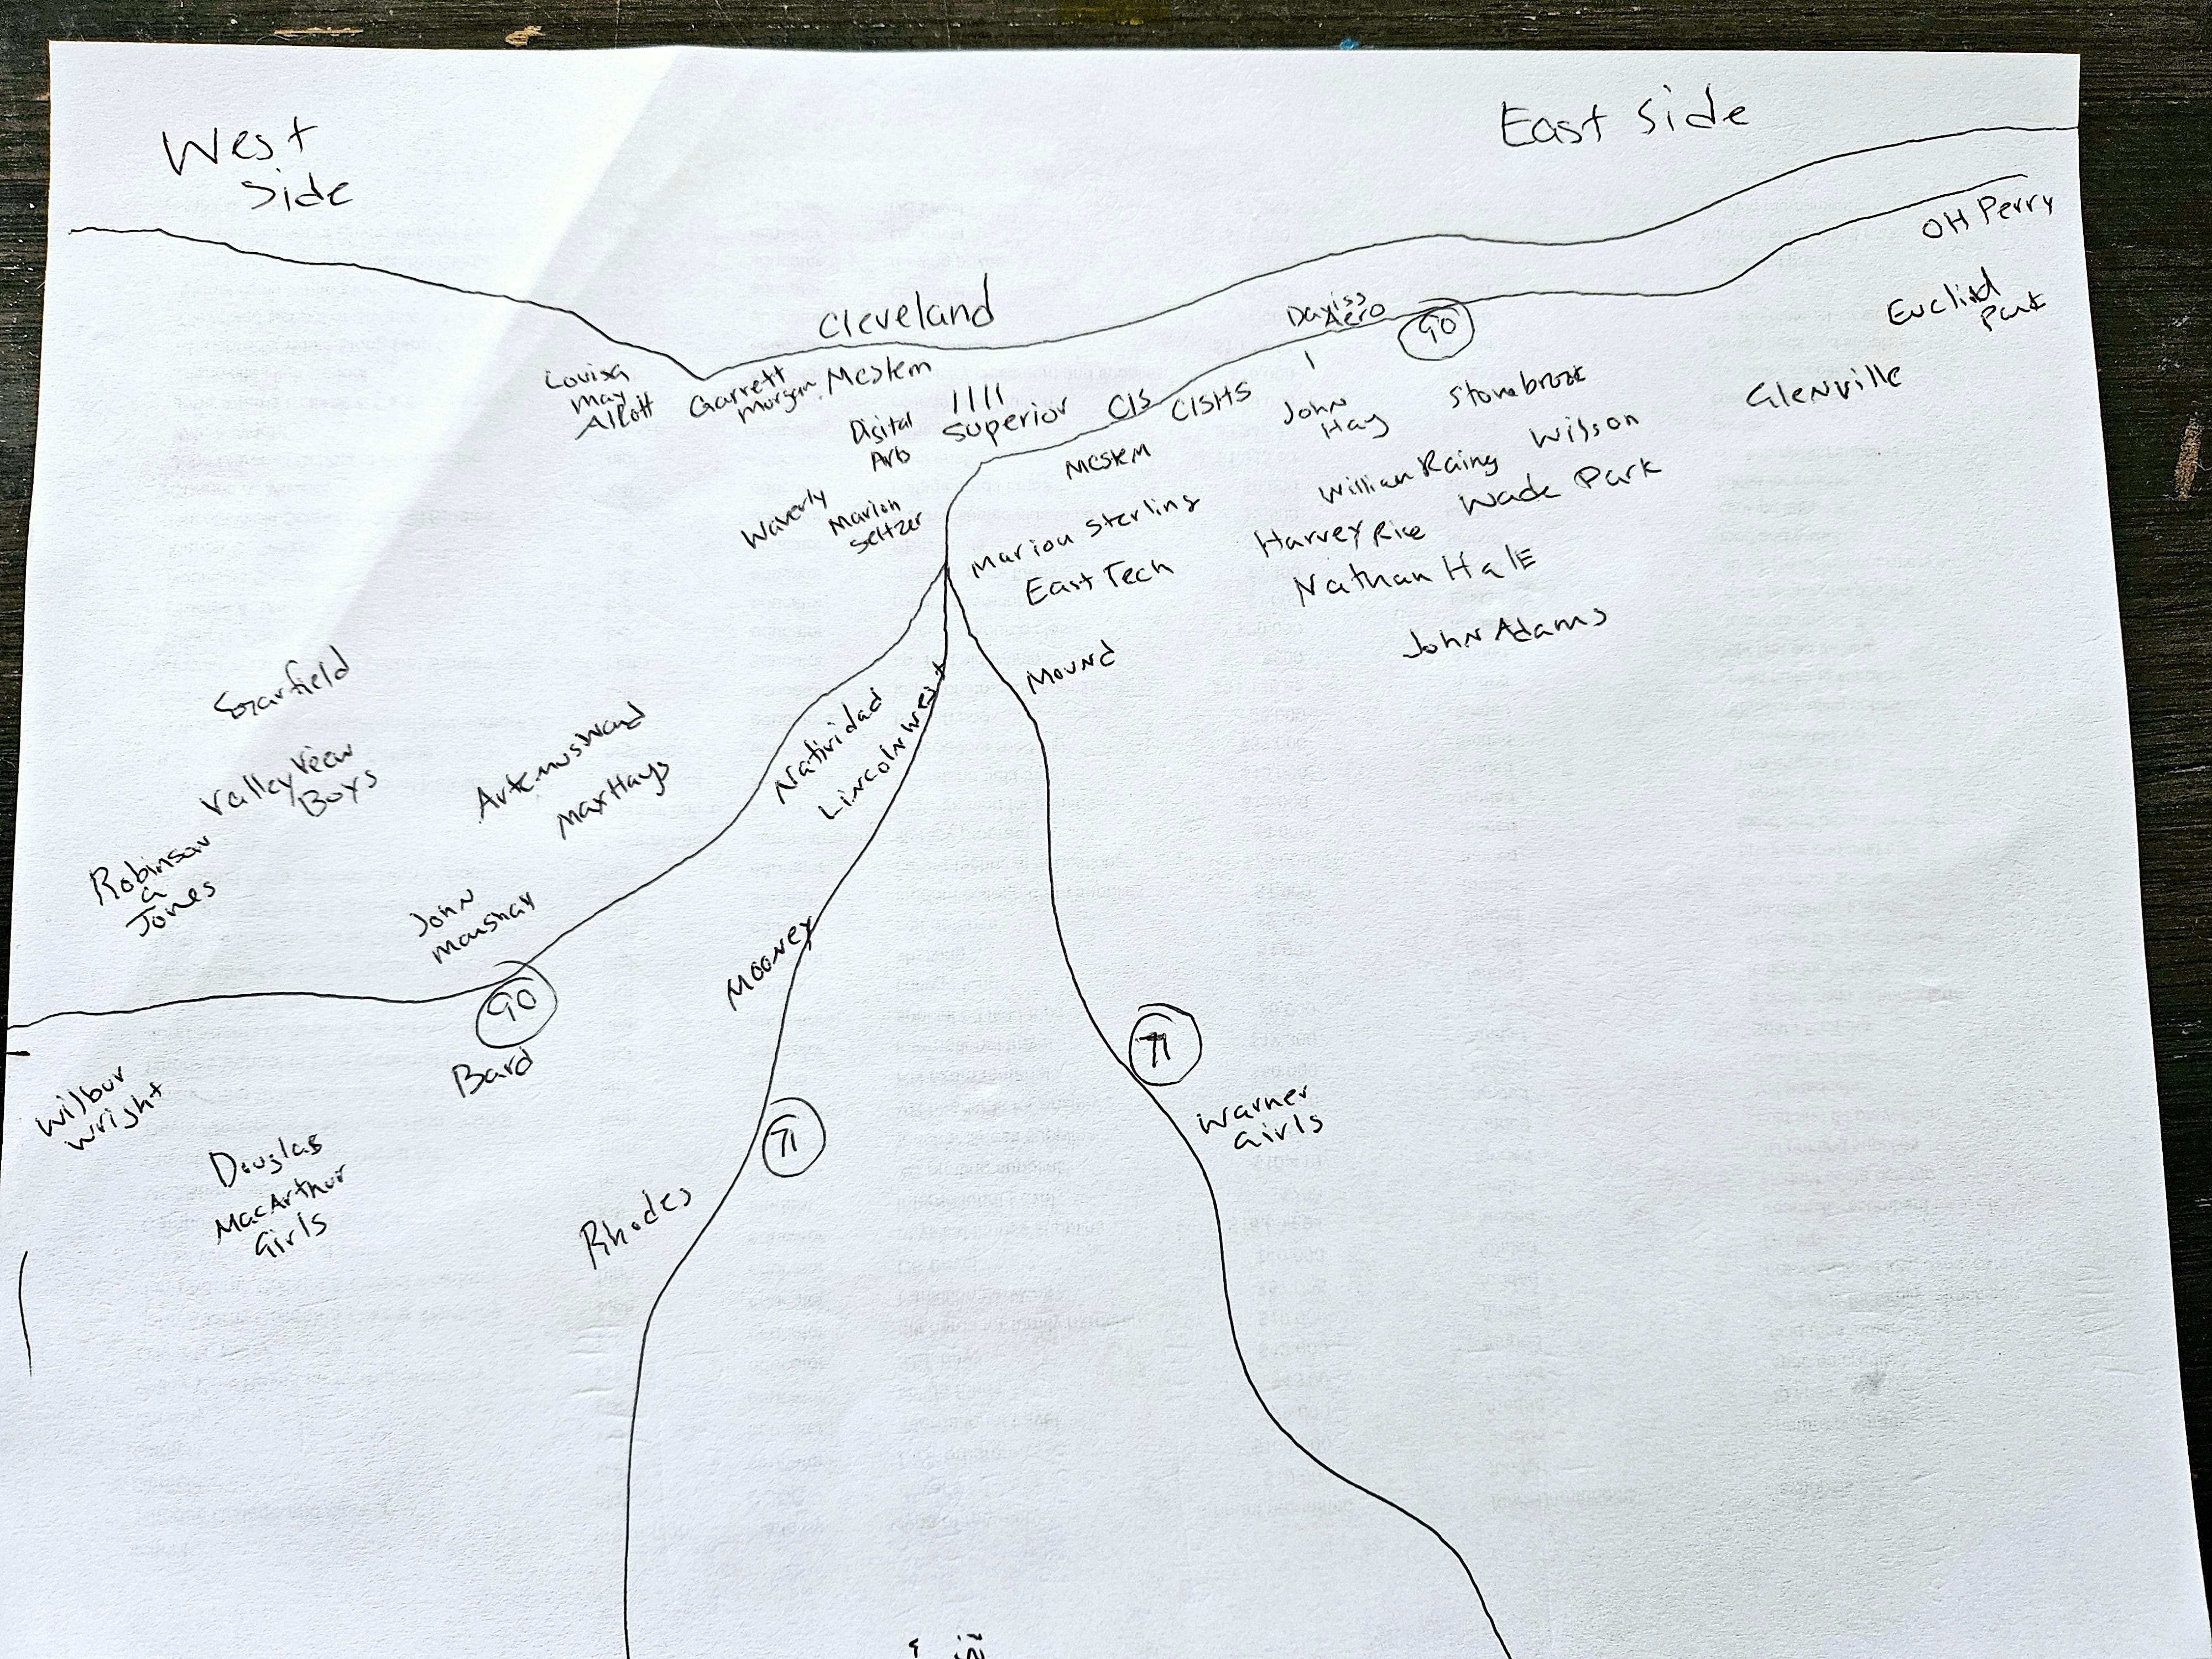 West
Side
East Side
Cleveland
OH Perry
Euclid
Park
Daviss
Aero
90
Louisa
May
Alcott
Garrett
Morgan
Mcstem
1111
Superior
Digital
Arts
CIS
CISHS
John
Hay
Stonebrook
Glenville
Mcstem
William Rainy
Wilson
Wade Park
Waverly
Marion
Seltzer
Marion Sterling
Harvey Rice
East Tech
Nathan Hale
John Adams
Mound
Garfield
Natividad
Lincoln West
Valley View
Boys
Artemus Ward
Max Hays
Robinson
G
Jones
John
Marshall
Mooney
90
Bard
71
Wilbur
Wright
Warner
Girls
71
Douglas
MacArthur
Girls
Rhodes